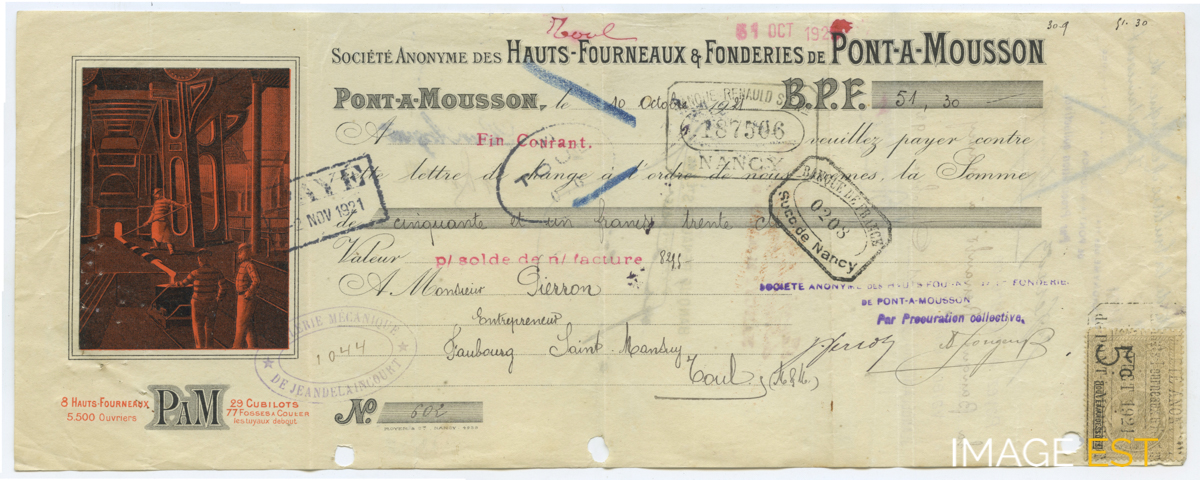 Toul
31 OCT 192
30 9
51.30
SOCIÉTÉ ANONYME DES HAUTS-FOURNEAUX & FONDERIES DE PONT-A-MOUSSON
PONT-A-MOUSSON, le 10 Octobre 1921 B.P.F. 51,30
BANQUE RENAULD
187506
NANCY
A Fin Courant, veuillez payer contre
lettre de change à l'ordre de nous-mêmes, la Somme
de cinquante et un francs trente c
PAYÉ
2 NOV 1921
BANQUE DE FRANCE
0203
Succ. de Nancy
Valeur p/ solde de n/ facture
A Monsieur Pierron
Entrepreneur
Faubourg Saint-Mansuy
Toul (M&M)
SOCIÉTÉ ANONYME DES HAUTS FOU FONDERIE
DE PONT-A-MOUSSON
Par Procuration collective,
MÉCANIQUE
1044
DE JEANDELAINCOURT
8 HAUTS-FOURNEAUX
5.500 Ouvriers
PAM
29 CUBILOTS
77 FOSSES A COULER
les tuyaux debout.
No. 602
OCT 1921
IMAGE EST